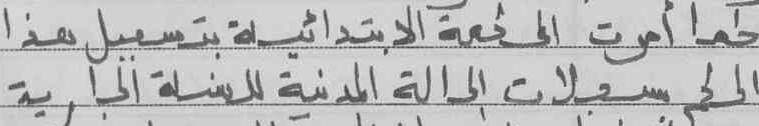 كما أمرت المحكمة الابتدائية بتسجيل هذا
الحكم بسجلات الحالة المدنية للسنة الجارية